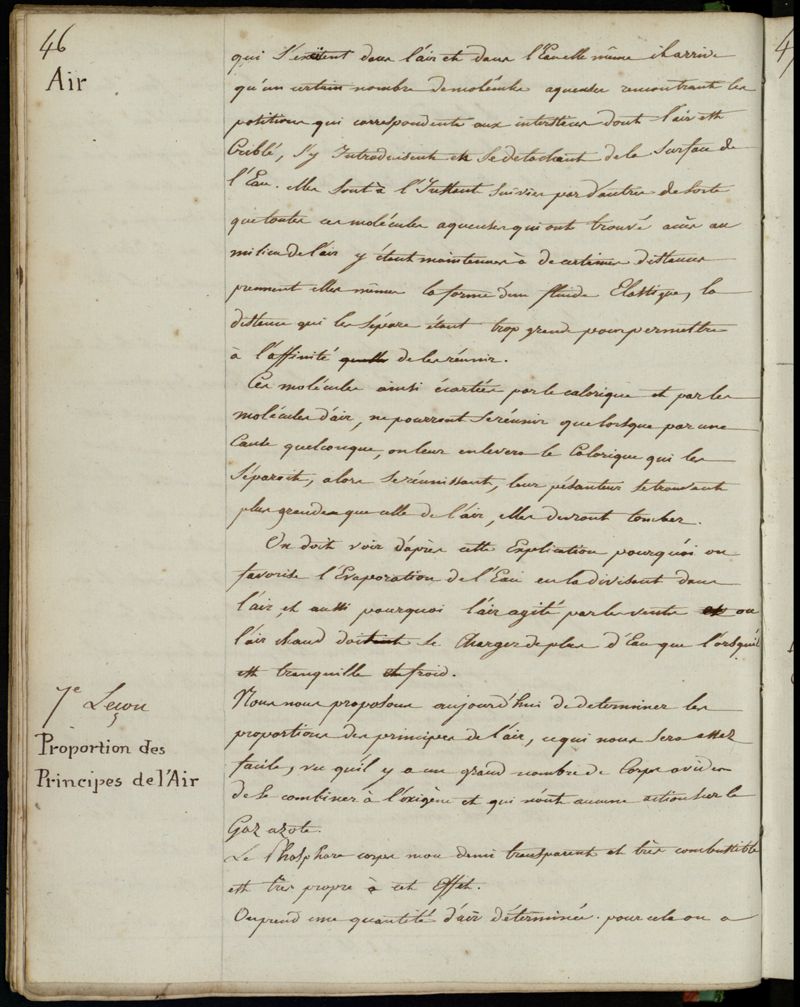 46
Air
qui s'excitent dans l'air et dans l'Eau elle même il arrive
qu'un certain nombre de molécules aqueuses rencontrant les
positions qui correspondent aux interstices dont l'air est
Criblé, s'y Introduisent et se detachant de la Surface de
l'Eau. elles sont à l'Instant suivies par d'autres de sorte
que toutes ces molécules aqueuses qui ont trouvé accès au
milieu de l'air y étant maintenues à de certaines distances
prennent elles mêmes la forme d'un fluide Elastique, la
distance qui les sépare étant trop grande pour permettre
à l'affinité de les réunir.
Ces molécules ainsi écartées par le calorique et par les
molécules d'air, ne pourront se réunir que lorsque par une
Cause quelconque, on leur enlevera le Calorique qui les
séparoit, alors se réunissant, leur pésanteur se trouvant
plus grande que celle de l'air, elles devront tomber.
On doit voir d'après cette Explication pourquoi on
favorise l'Evaporation de l'Eau en la divisant dans
l'air, et aussi pourquoi l'air agité par le vents ou
l'air chaud doit se Charger de plus d'Eau que l'orsqu'il
est tranquille et froid.
7e Leçon
Proportion des
Principes de l'Air
Nous nous proposons aujourd'hui de determiner les
proportions des principes de l'air, ce qui nous sera assez
facile, vu qu'il y a un grand nombre de Corps avides
de se combiner à l'oxigène et qui n'ont aucune action sur le
Gaz azote.
Le Phosphore corps mou demi transparent et très combustible
est très propre à cet effet.
On prend une quantité d'air déterminée. pour cela on a